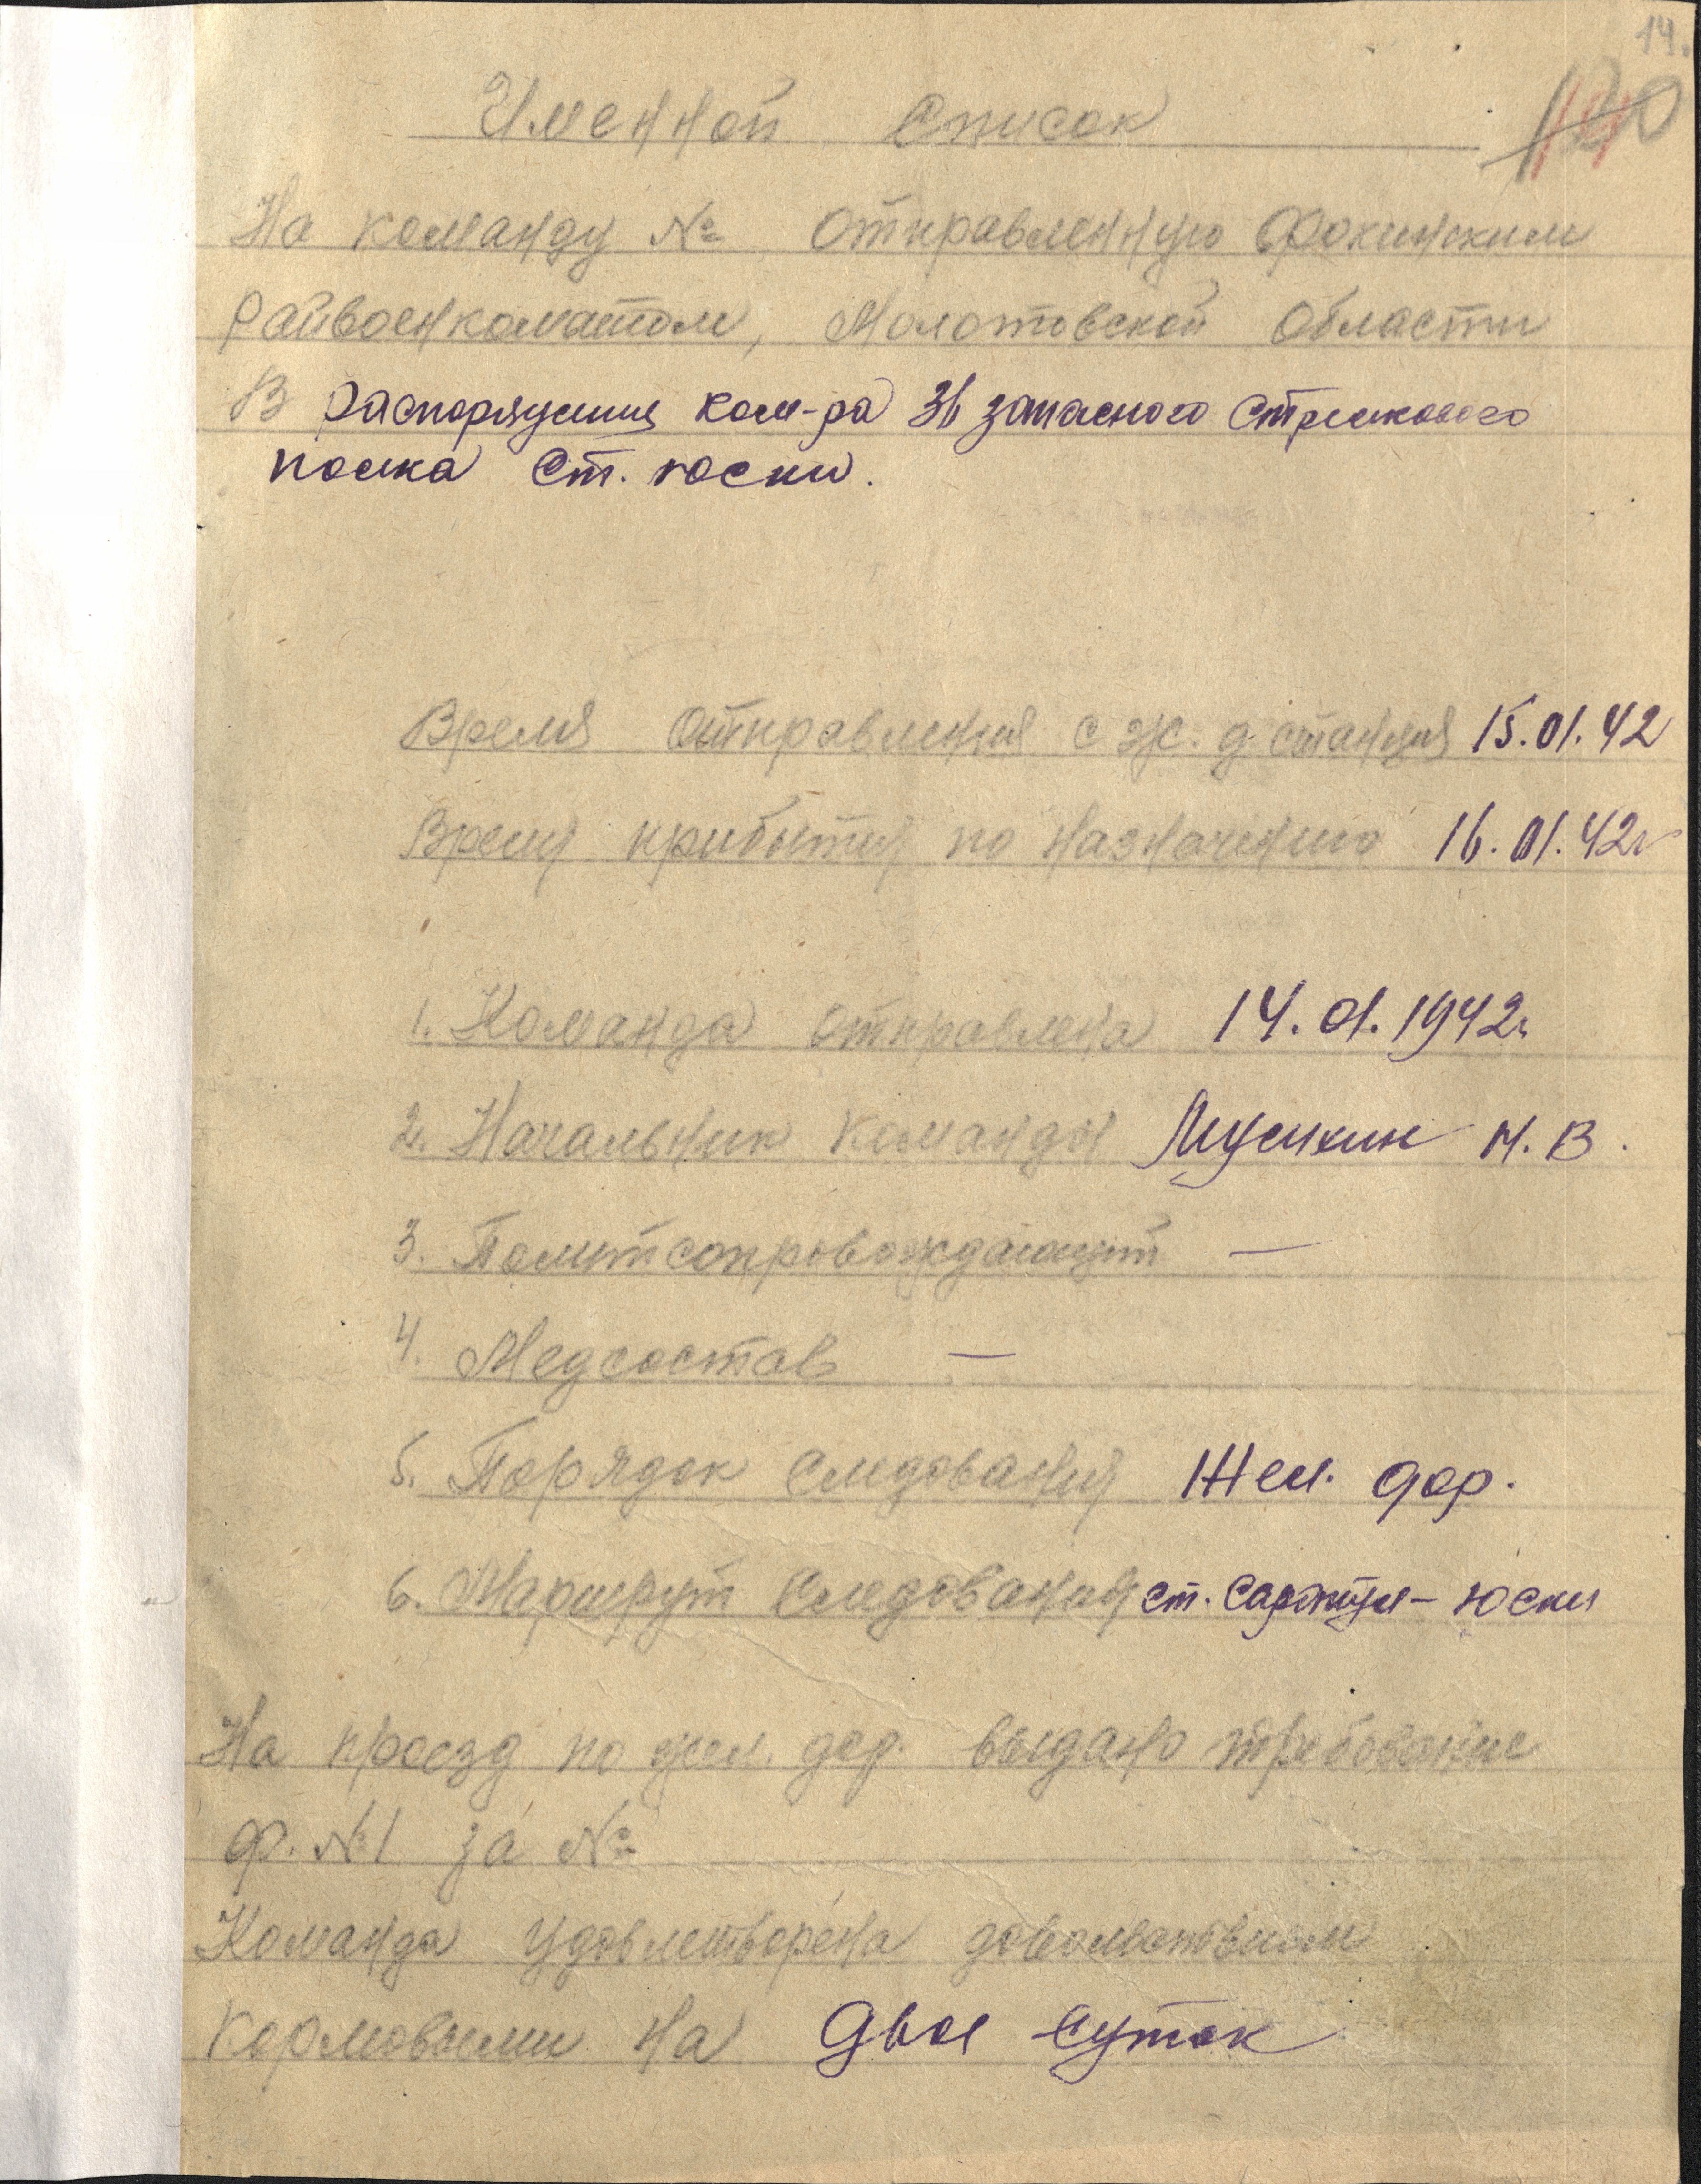 14.
Именной Список
На команду № Отправленную Фокинским
Райвоенкоматом, Молотовской Области
В распоряжения ком-ра 36 запасного стрелкового
полка ст. Юски.
Время Отправления с ж. д. станция 15.01.42
Время прибытия по назначению 16.01.42г
1. Команда отправлена 14.01.1942г.
2. Начальник команды
3. Политсопровождающий —
4. Медсостав —
5. Порядок следования Жел. дор.
6. Маршрут следования ст. – Юски
На проезд по жел. дор. выдано требование
Ф. №1 за №
Команда удовлетворена довольствием
Кормовыми на двое суток